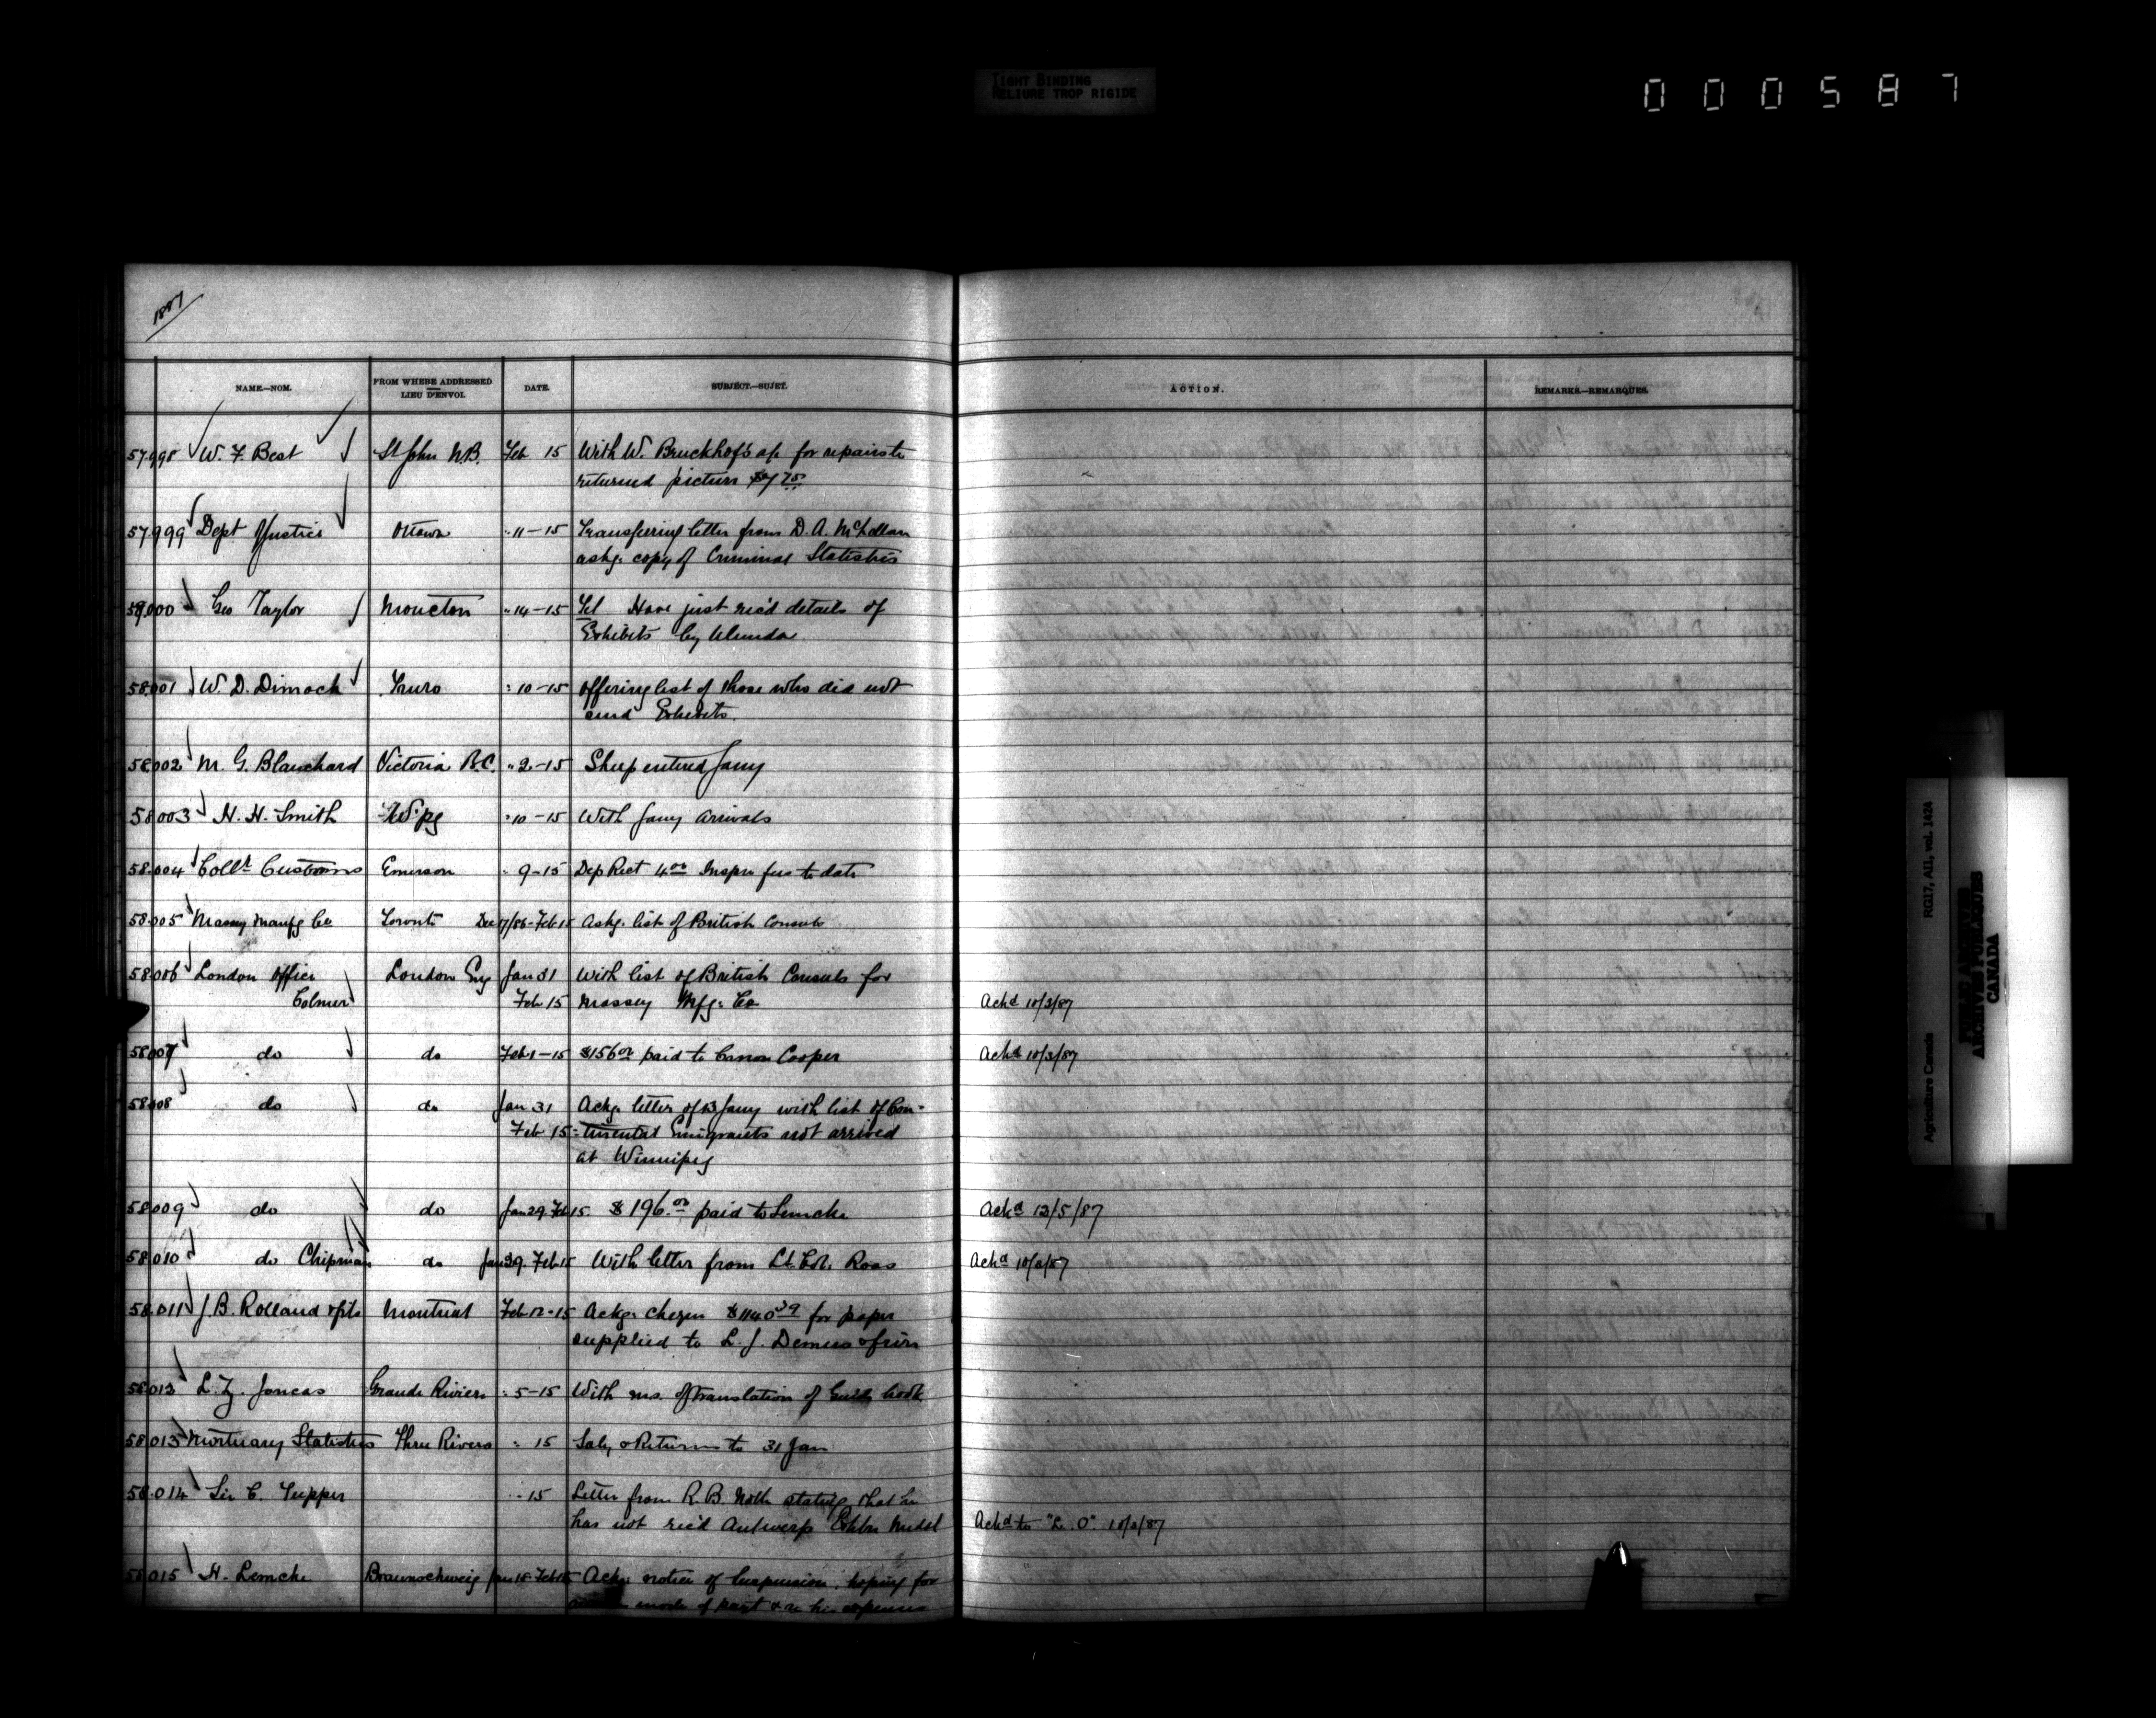 TIGHT BINDING
RELIURE TROP RIGIDE
000587
1887
NAME.—NOM.
FROM WHERE ADDRESSED
LIEU D'ENVOI.
DATE.
SUBJECT.—SUJET.
ACTION.
REMARKS.—REMARQUES.
57.998 W. F. Best St John N.B. Feb 15 With W. Bruckhof's a/c for repairs to
returned picture $7 75
57.999 Dept Justice Ottawa " 11-15 Transferring letter from D. A. McLellan
askg. copy of Criminal Statistics
58.000 Geo Taylor Moncton " 14-15 Tel Have just rec'd details of
Exhibits by Ulunda
58.001 W. D. Dimock Truro " 10-15 Offering list of those who did not
send Exhibits.
58.002 M. G. Blanchard Victoria B.C. " 2-15 Sheep entered Jany
58.003 H. H. Smith W'pg " 10-15 With Jany arrivals
58.004 Collr Customs Emerson " 9-15 Dep Rect 4.00 Inspn fees to date
58.005 Massey Manfg Co Toronto Dec 17/86-Feb 15 Askg. list of British Consuls
58.006 London Office London Eng Jan 31 With list of British Consuls for
Colmer Feb 15 Massey Mfg. Co Ackd 10/3/87
58.007 do do Feb 1-15 $156.00 paid to Canon Cooper Ackd 10/3/87
58.008 do do Jan 31 Ackg. letter of 13 Jany with list of Con-
Feb 15 -tinental Emigrants not arrived
at Winnipeg
58.009 do do Jan 29. Feb 15. $196.00 paid to Lemcke Ackd 13/5/87
58.010 do Chipman do Jan 29. Feb 15 With letter from Lt. Col. Ross Ackd 10/3/87
58.011 J. B. Rolland & fils Montreal Feb 12-15 Ackg. cheque $1140.39 for paper
supplied to L. J. Demers & frère
58.012 L. Z. Joncas Grande Riviere " 5-15 With ms. of translation of Guide book
58.013 Mortuary Statistics Three Rivers " 15 Saly & Returns to 31 Jan
58.014 Sir C. Tupper " - 15 Letter from R. B. stating that he
has not rec'd Antwerp Exhbn Medal Ackd to "L. O". 10/3/87
58.015 H. Lemcke Braunschweig Jan 18-Feb 15 Ackg. notice of Suspension, hoping for
mode of payt & re his expenses
Agriculture Canada RG17, AI1, vol. 1424
PUBLIC ARCHIVES
ARCHIVES PUBLIQUES
CANADA